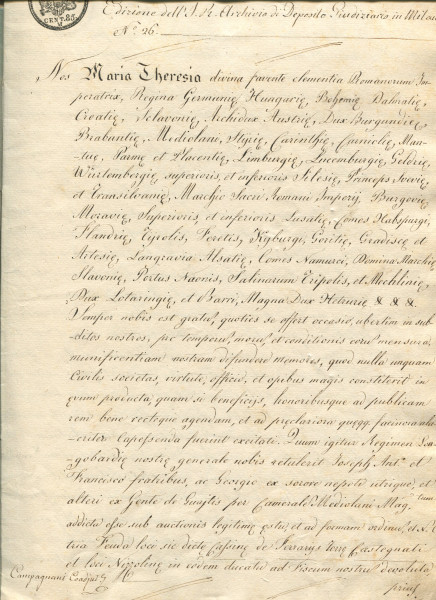 CENT. 85.
Edizione dell' I. R. Archivio di Deposito Giudiziario in Milano
N.° 26.
Nos Maria Theresia divina favente clementia Romanorum Im-
peratrix, Regina Germanię, Hungarię, Bohemię, Dalmatię,
Croatię, Sclavonię, Archidux Austrię, Dux Burgundię,
Brabantię, Mediolani, Styrię, Carinthię, Carniolę, Man-
tuę, Parmę et Placentię, Limburgię, Lucemburgię, Geldrię,
Würtembergię, superioris, et inferioris Silesię, Princeps Svevię
et Transilvanię, Marchio Sacri Romani Imperij, Burgovię,
Moravię, Superioris, et inferioris Lusatię, Comes Habspurgi,
Flandrię, Tyrolis, Ferretis, Kyburgi, Goritię, Gradiscę et
Artesię, Langravia Alsatię, Comes Namurci, Domina Marchię
Slavonię, Portus Naonis, Salinarum Tripolis, et Mechlinię,
Dux Lotaringię, et Barri, Magna Dux Hetrurię & & &.
Semper nobis est gratu, quoties se offert occasio, ubertim in sub-
ditos nostros, pro temporu, moru, et conditionis eoru mensura,
munificentiam nostram difundere memores, quod nulla unquam
Civilis societas, virtute, officio, et opibus magis constiterit in
quam si beneficijs, honoribusque ad publicam
rem bene recteque agendam, et ad preclariora quęque facinora
Capessenda fuerint excitate. Quum igitur Regimen Lon-
gobardię nostrę generale nobis retulerit Joseph Ant.° et
Francisco fratribus, ac Georgio ex sorore nepote utrique, et
alteri ex Gente de per Camerale Mediolani Mag.tum
addicta esse sub auctionis legitimę et ad formam
tria Feuda loci sic dicte Cassine de Ferraris, terre Castegnati
et loci Nizolinę in eodem ducatu ad Fiscum nostru devoluta,
Campagnani
prius